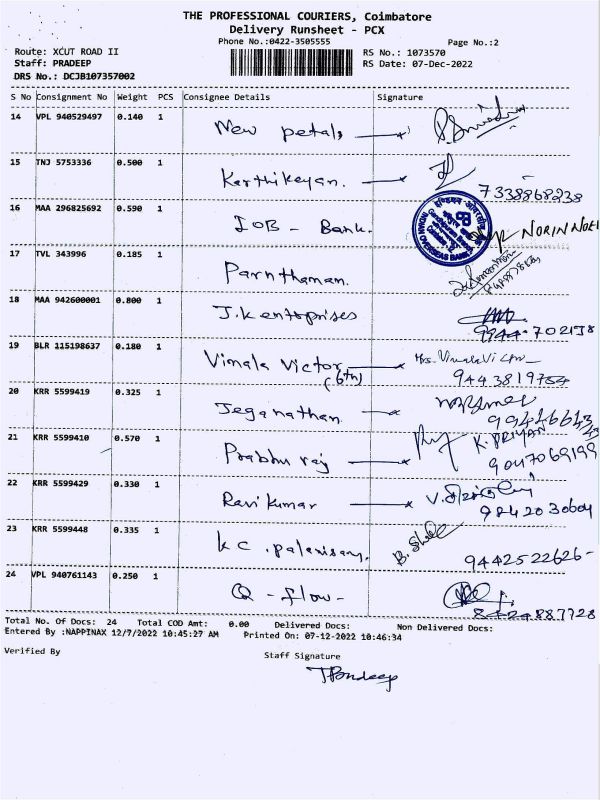 THE PROFESSIONAL COURIERS, Coimbatore
Delivery Runsheet - PCX
Phone No.:0422-3505555 Page No.:2
Route: XCUT ROAD II RS No.: 1073570
Staff: PRADEEP RS Date: 07-Dec-2022
DRS No.: DCJB107357002
S No Consignment No Weight PCS Consignee Details Signature
14 VPL 940529497 0.140 1 New petals
15 TNJ 5753336 0.500 1 Karthikeyan. 7338868238
16 MAA 296825692 0.590 1 IOB - Bank. INDIAN OVERSEAS BANK
17 TVL 343996 0.185 1 Parnthaman.
18 MAA 942600001 0.800 1 J.k entorprises 9944-702138
19 BLR 115198637 0.180 1 Vimala Victor (6th) Mrs. Vimala Victor 9443819754
20 KRR 5599419 0.325 1 Jeganathan.
21 KRR 5599410 0.570 1 Prabhu raj K. PRIYAN 9047069199
22 KRR 5599429 0.330 1 Ravi Kumar 9842030604
23 KRR 5599448 0.335 1 K C . palanisamy. 9442522626-
24 VPL 940761143 0.250 1 Q - flow - 8424887728
Total No. Of Docs: 24 Total COD Amt: 0.00 Delivered Docs: Non Delivered Docs:
Entered By :NAPPINAX 12/7/2022 10:45:27 AM Printed On: 07-12-2022 10:46:34
Verified By Staff Signature